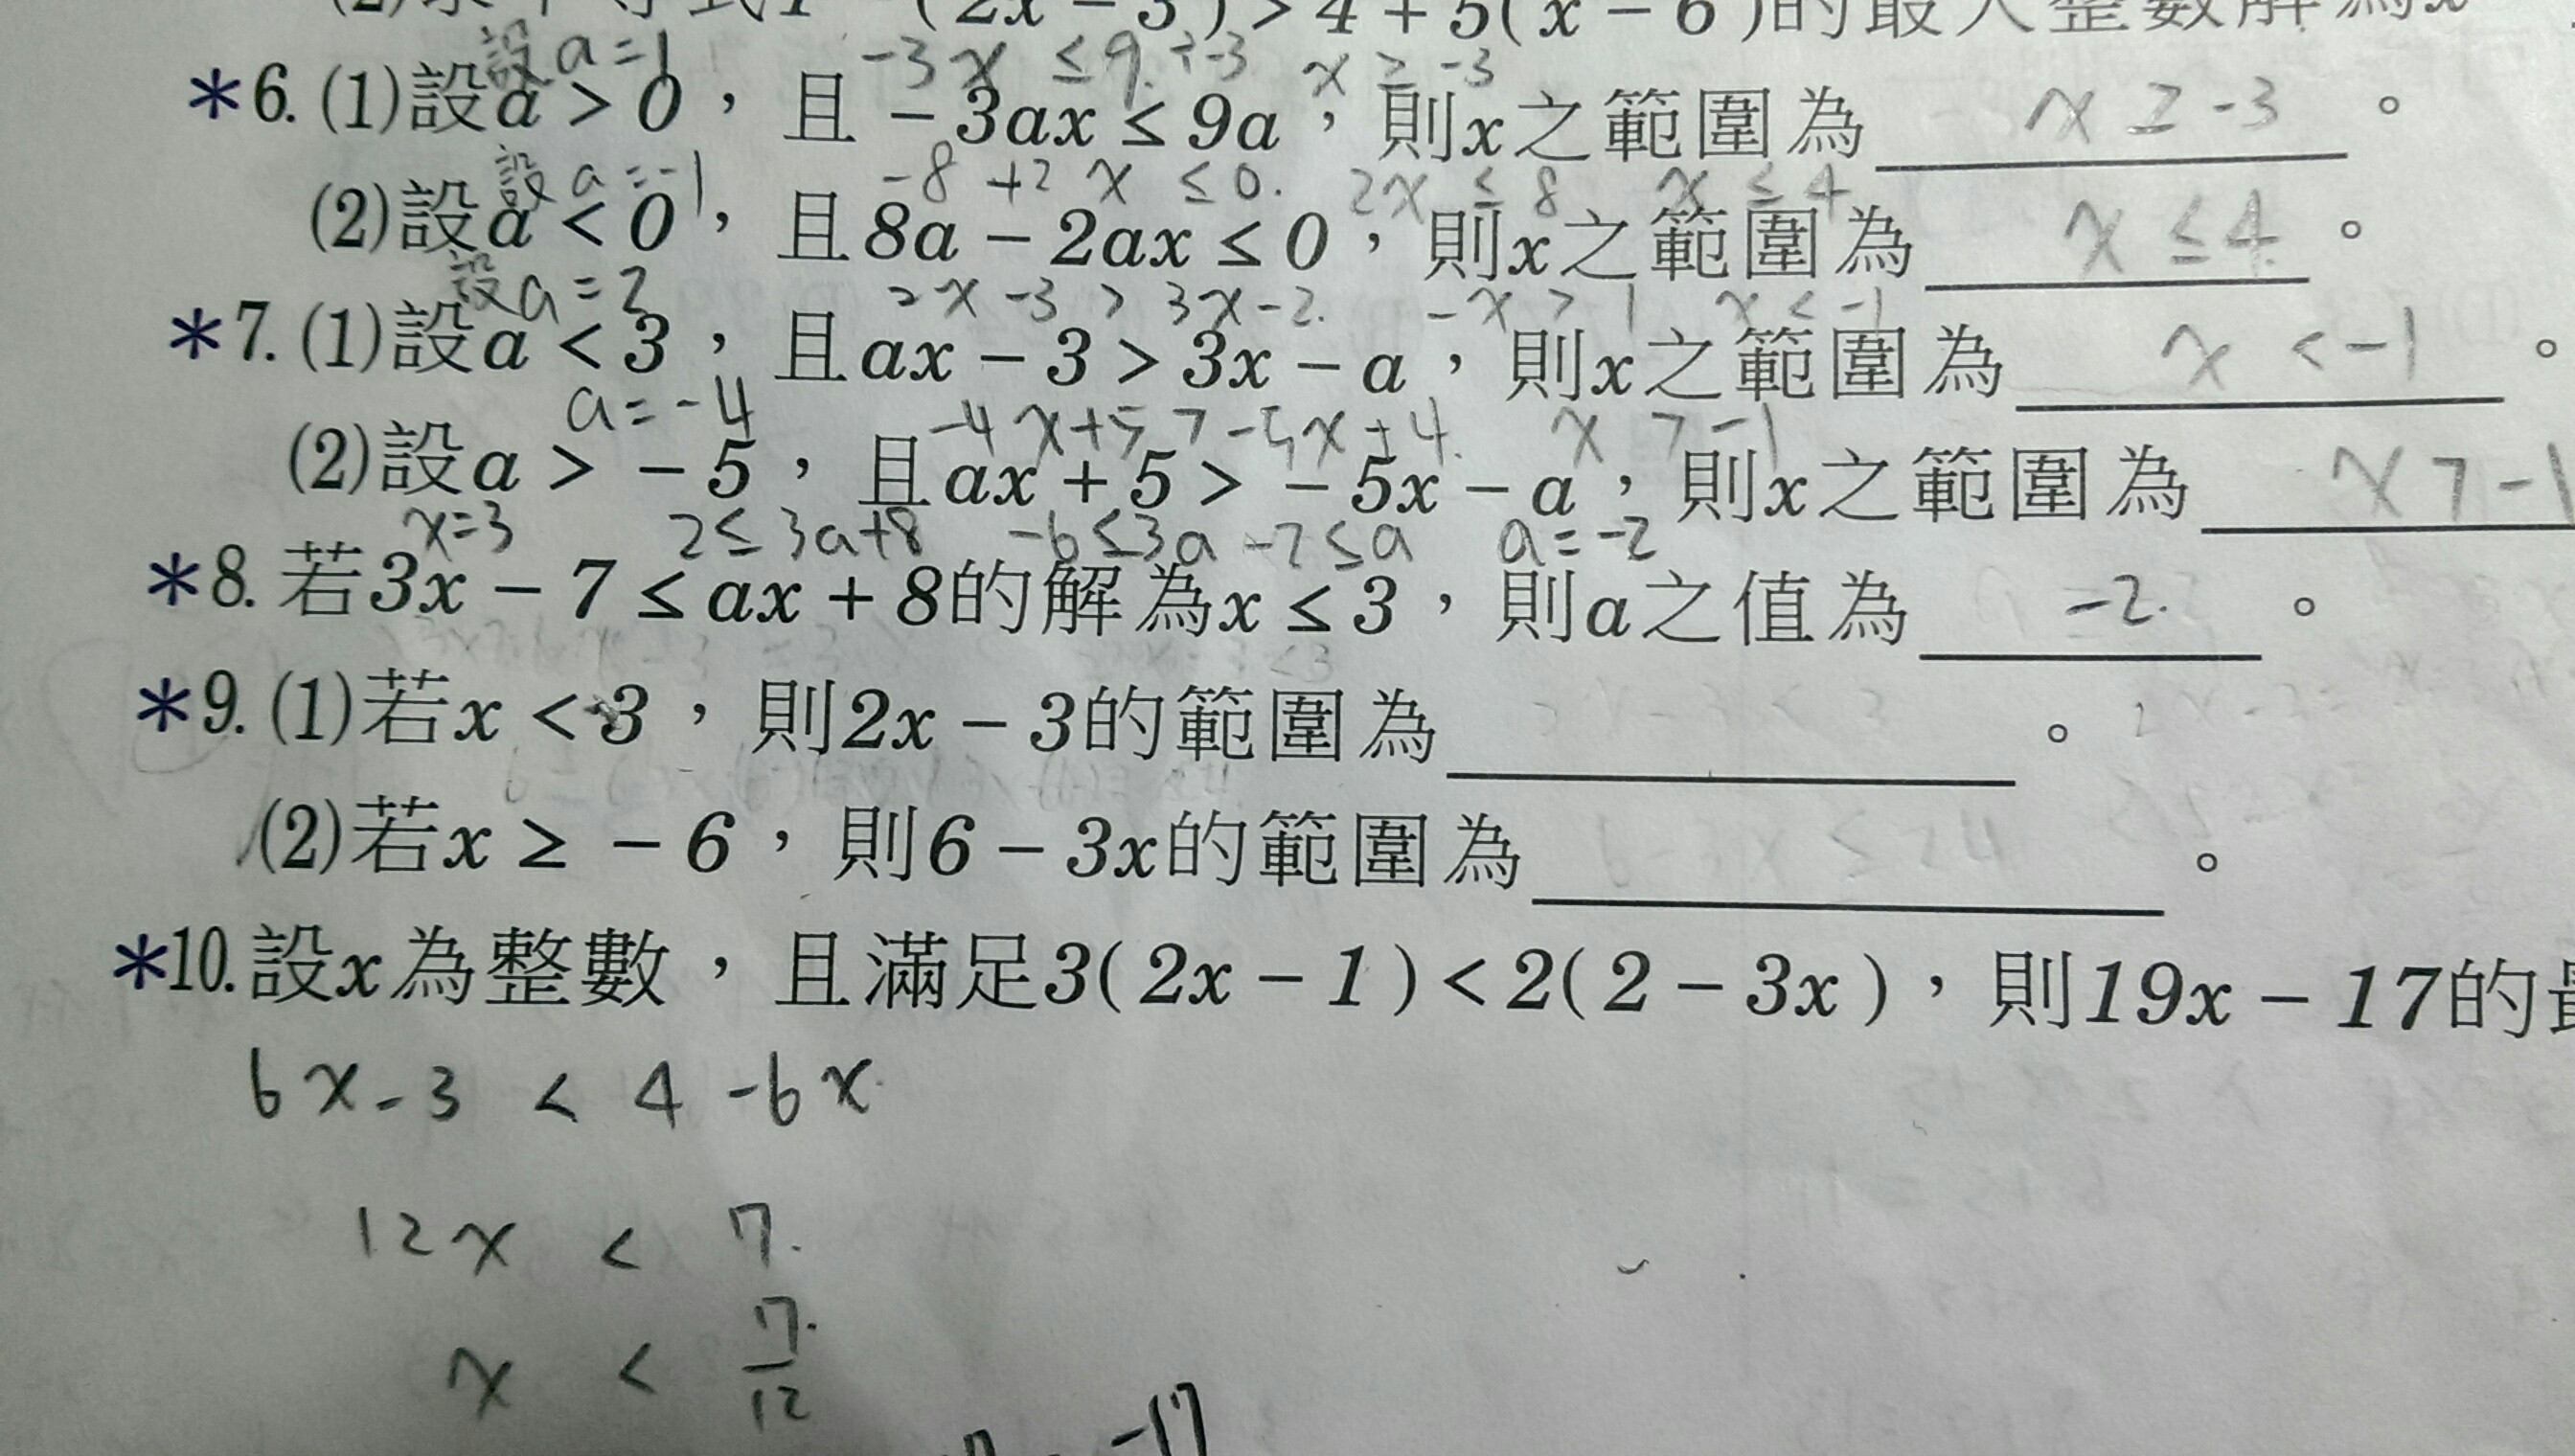 4 + 5( x − 6 )的最大整數解為x
設 a = 1 −3x ≤ 9 ÷ -3 x ≥ -3
*6. (1)設a > 0，且 − 3ax ≤ 9a，則x之範圍為 x ≥ -3 。
設 a = -1 -8 +2x ≤ 0. 2x ≤ 8 x ≤ 4
(2)設a < 0，且8a − 2ax ≤ 0，則x之範圍為 x ≤ 4 。
設 a = 2 2x -3 > 3x -2. -x > 1 x < -1
*7. (1)設a < 3，且ax − 3 > 3x − a，則x之範圍為 x < -1 。
a = -4 -4x+5 > -5x+4. x > -1
(2)設a > − 5，且ax + 5 > − 5x − a，則x之範圍為 x > -1
x=3 2≤3a+8 -6≤3a -2≤a a=-2
*8. 若3x − 7 ≤ ax + 8的解為x ≤ 3，則a之值為 -2. 。
*9. (1)若x < 3，則2x − 3的範圍為 2x-3<3 。
(2)若x ≥ − 6，則6 − 3x的範圍為 6-3x ≤ 24 。
*10. 設x為整數，且滿足3( 2x − 1 ) < 2( 2 − 3x )，則19x − 17的最
6x - 3 < 4 - 6x
12x < 7.
x < 7/12
-17